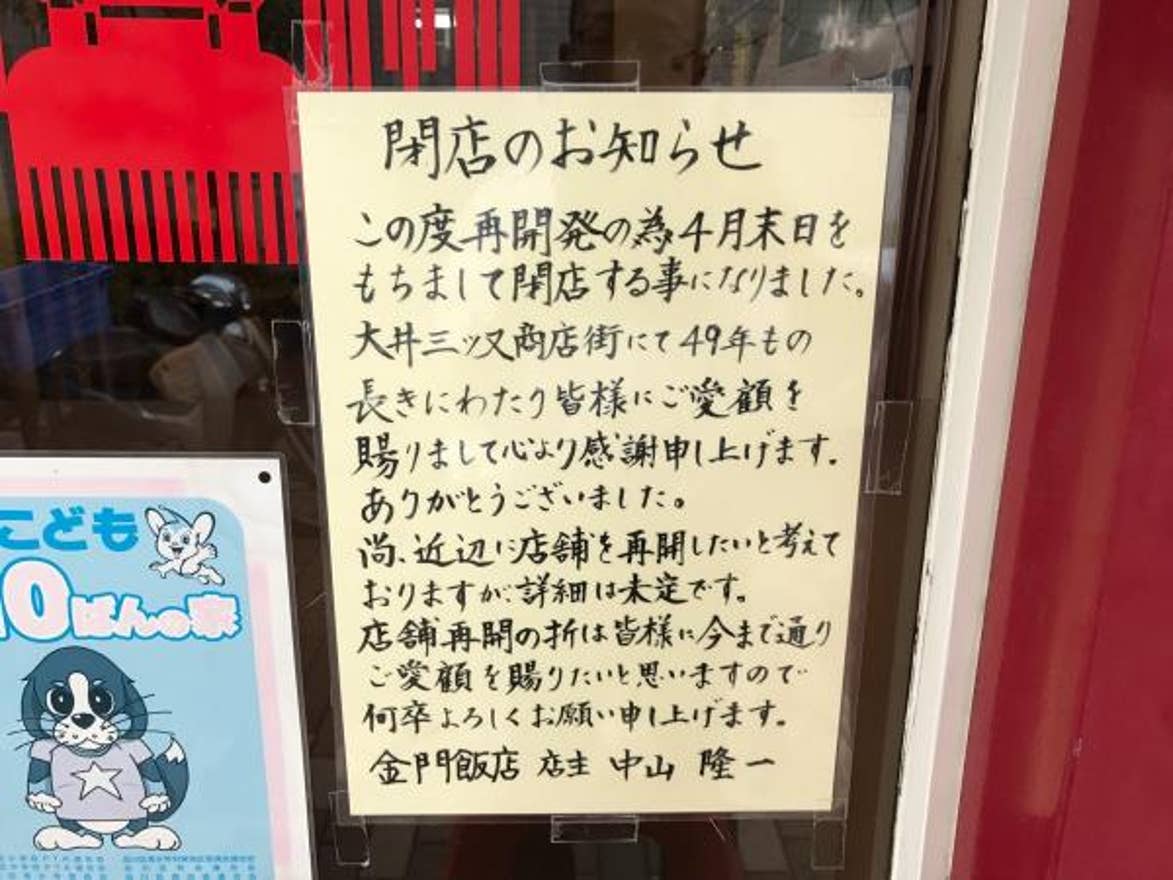 閉店のお知らせ
この度再開発の為4月末日を
もちまして閉店する事になりました。
大井三ッ又商店街にて49年もの
長きにわたり皆様にご愛顧を
賜りまして心より感謝申し上げます。
ありがとうございました。
尚、近辺に店舗を再開したいと考えて
おりますが、詳細は未定です。
店舗再開の折は皆様に今まで通り
ご愛顧を賜りたいと思いますので
何卒よろしくお願い申し上げます。
金門飯店 店主 中山 隆一
こども
10ばんの家